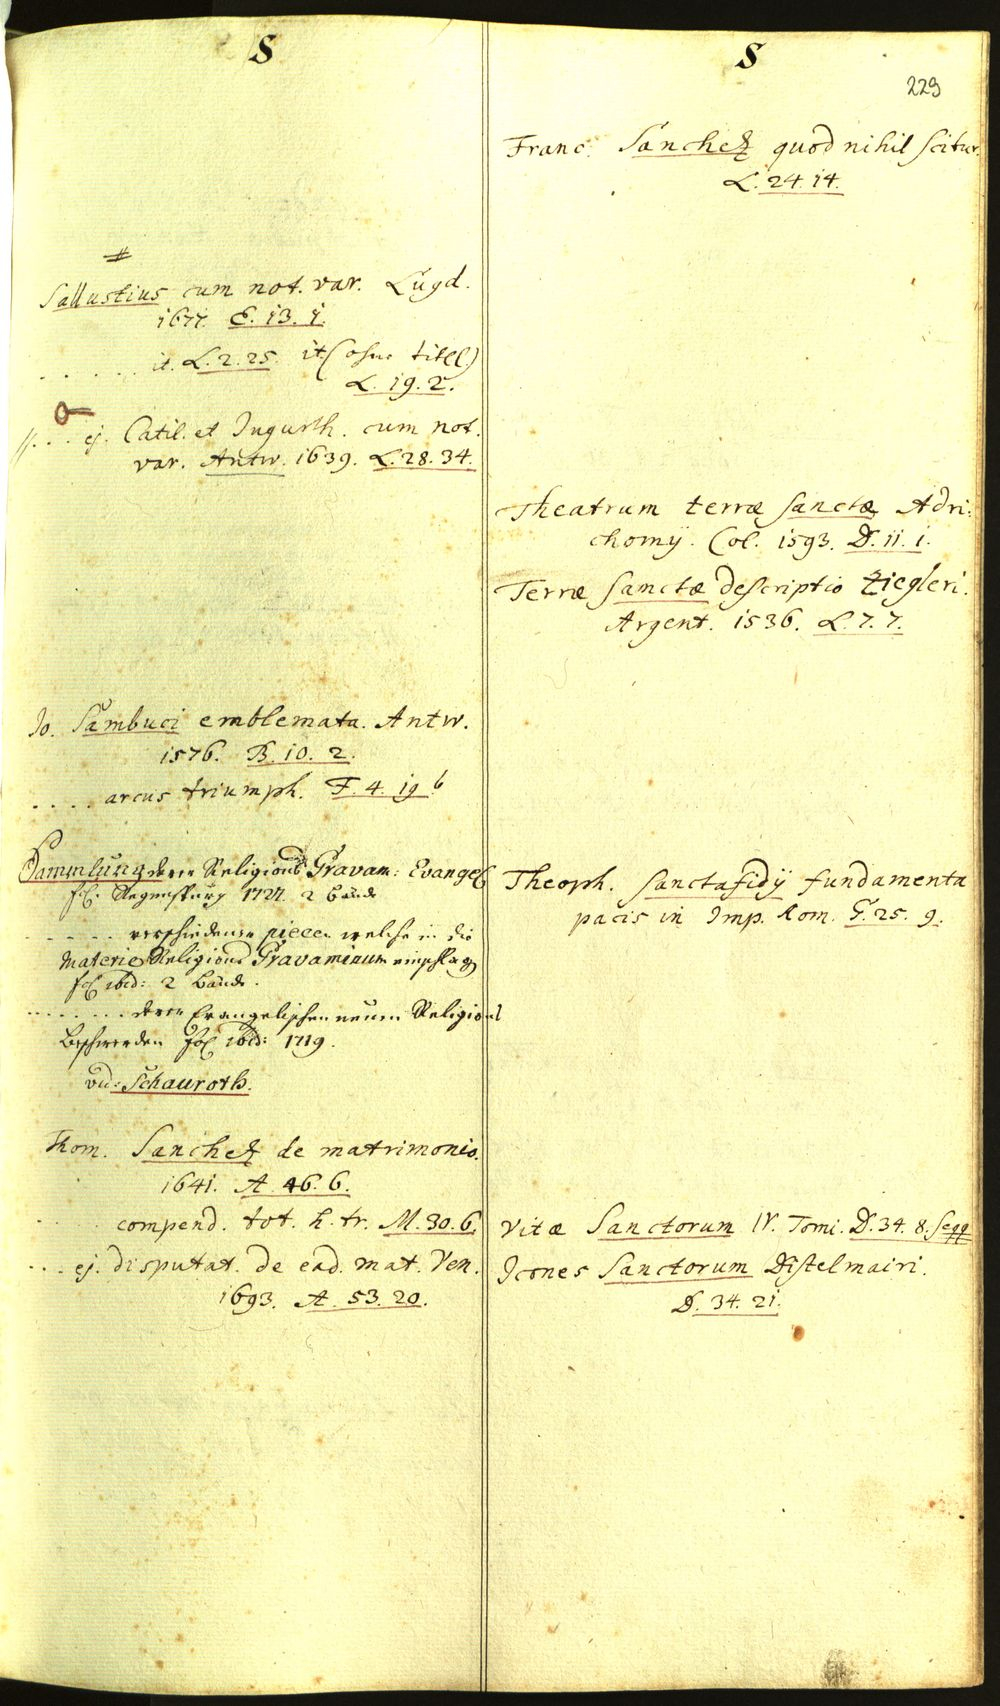 S
#
Sallustius cum not. var. Lugd.
1677. E. 13. 1.
. . . . . . it. L. 2. 25. it (ohne titel)
L. 19. 2.
ej. Catil. et Jugurth. cum not.
var. Antw. 1639. L. 28. 34.
Jo. Sambuci emblemata. Antw.
1576. B. 10. 2.
. . . . arcus triumph. F. 4. 19 b
Sammlung derer Religions Gravam: Evangel
fol. Regenspurg 1727. 2 bände
. . . . . verschiedener piecen welche in die
Materie Religions Gravaminum
fol ibid: 2 Bände.
. . . . . . . derer Evangelischen neuen Religions
Beschwerden fol ibid: 1719.
vid: Schauroth.
Thom. Sanchez de matrimonio.
1641. A. 46. 6.
compend. tot. h. tr. M. 30. 6.
. . . ej. disputat. de ead. mat. Ven.
1693. A. 53. 20.
S
229
Franc. Sanchez quod nihil scitur.
L. 24. 14.
Theatrum terræ sanctæ Adri:
chomÿ. Col. 1593. D. 11. 1.
Terræ sanctæ descriptio Ziegleri.
Argent. 1536. L. 7. 7.
Theoph. Sanctafidÿ fundamenta
pacis in Imp. Rom. G. 25. 9.
Vitæ Sanctorum IV. Tomi. D. 34. 8. seqq
Icones Sanctorum Distelmairi.
D. 34. 21.